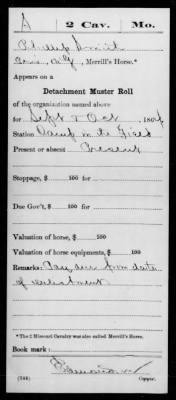 A | 2 Cav. | Mo.
Phillip Smith
Co. G, Merrill's Horse.*
Appears on a
Detachment Muster Roll
of the organization named above
for Sept & Oct, 186
Station Camp in the Field
Present or absent Present
Stoppage, $ 100 for
Due Gov't, $ 100 for
Valuation of horse, $ 100
Valuation of horse equipments, $ 100
Remarks: Pay due from date
of enlistment
*The 2 Missouri Cavalry was also called Merrill's Horse.
Book mark:
Copyist.